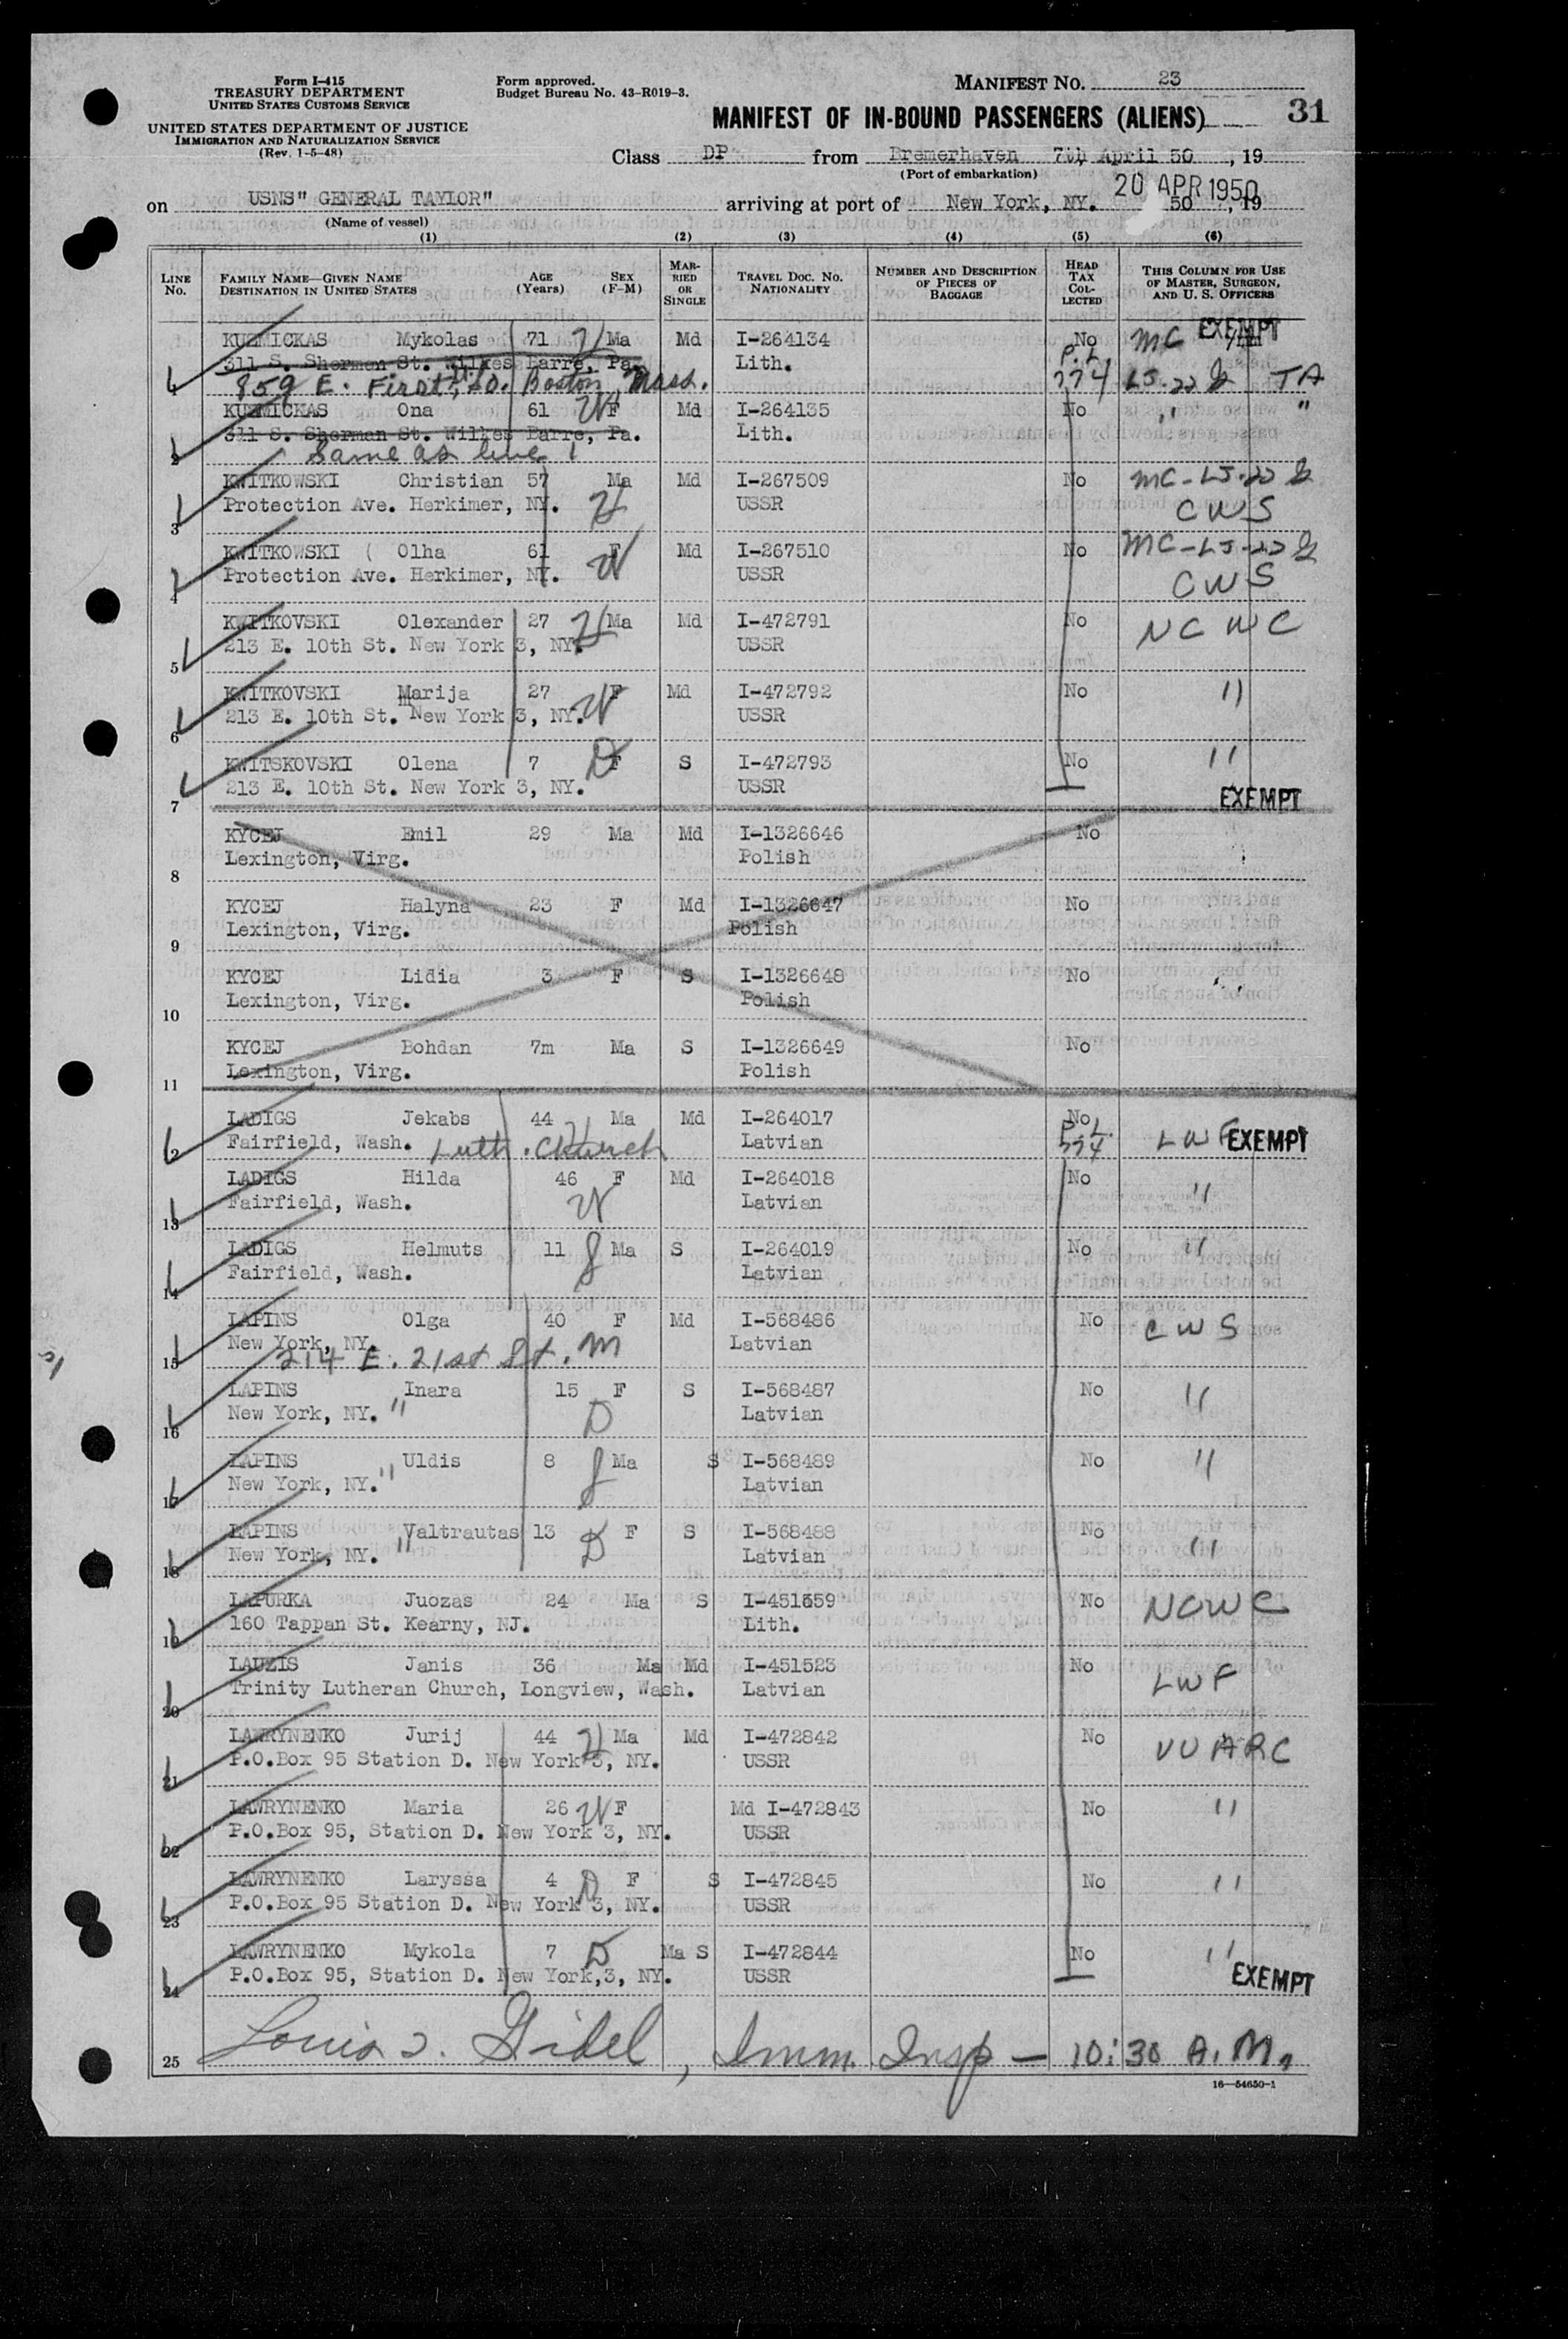 Form I-415
TREASURY DEPARTMENT
UNITED STATES CUSTOMS SERVICE
UNITED STATES DEPARTMENT OF JUSTICE
IMMIGRATION AND NATURALIZATION SERVICE
(Rev. 1-5-48)
Form approved.
Budget Bureau No. 43-R019-3.
MANIFEST NO. 23
MANIFEST OF IN-BOUND PASSENGERS (ALIENS) 31
Class DP from Bremerhaven 7th April 50, 19
(Port of embarkation)
20 APR 1950
on USNS" GENERAL TAYLOR" arriving at port of New York, NY. 50, 19
(Name of vessel)
(1) (2) (3) (4) (5) (6)
LINE No. FAMILY NAME—GIVEN NAME DESTINATION IN UNITED STATES AGE (Years) SEX (F-M) MARRIED OR SINGLE TRAVEL DOC. NO. NATIONALITY NUMBER AND DESCRIPTION OF PIECES OF BAGGAGE HEAD TAX COLLECTED THIS COLUMN FOR USE OF MASTER, SURGEON, AND U. S. OFFICERS
KUZMICKAS Mykolas 71 Ma Md I-264134 No MC EXEMPT
311 S. Sherman St. Wilkes Barre, Pa. Lith. P.L.
1 859 E. First, So. Boston, Mass. 774 LJ-22 TA
KUZMICKAS Ona 61 W F Md I-264135 No " "
311 S. Sherman St. Wilkes Barre, Pa. Lith.
2 Same as line 1
KWITKOWSKI Christian 57 Ma Md I-267509 No MC-LJ-22
3 Protection Ave. Herkimer, NY. H USSR CWS
KWITKOWSKI ( Olha 61 F Md I-267510 No MC-LJ-22
4 Protection Ave. Herkimer, NY. W USSR CWS
KWITKOVSKI Olexander 27 H Ma Md I-472791 No NCWC
5 213 E. 10th St. New York 3, NY. USSR
KWITKOVSKI Marija 27 F Md I-472792 No "
6 213 E. 10th St. New York 3, NY. W USSR
KWITSKOVSKI Olena 7 D F S I-472793 No "
7 213 E. 10th St. New York 3, NY. USSR EXEMPT
KYCEJ Emil 29 Ma Md I-1326646 No
8 Lexington, Virg. Polish
KYCEJ Halyna 23 F Md I-1326647 No
9 Lexington, Virg. Polish
KYCEJ Lidia 3 F S I-1326648 No
10 Lexington, Virg. Polish
KYCEJ Bohdan 7m Ma S I-1326649 No
11 Lexington, Virg. Polish
LADIGS Jekabs 44 H Ma Md I-264017 No P.L.
12 Fairfield, Wash. Luth. Church Latvian 774 LWF EXEMPT
LADIGS Hilda 46 F Md I-264018 No "
13 Fairfield, Wash. W Latvian
LADIGS Helmuts 11 S Ma S I-264019 No "
14 Fairfield, Wash. Latvian
LAPINS Olga 40 F Md I-568486 No CWS
New York, NY. Latvian
15 214 E. 21st St. M
LAPINS Inara 15 F S I-568487 No "
16 New York, NY. " D Latvian
LAPINS Uldis 8 S Ma S I-568489 No "
17 New York, NY. " Latvian
LAPINS Valtrautas 13 D F S I-568488 No "
18 New York, NY. " Latvian
LAPURKA Juozas 24 Ma S No NCWC
19 160 Tappan St. Kearny, NJ. Lith.
LAUZIS Janis 36 Ma Md I-451523 No LWF
20 Trinity Lutheran Church, Longview, Wash. Latvian
LAWRYNENKO Jurij 44 H Ma Md I-472842 No UUARC
21 P.O.Box 95 Station D. New York 3, NY. USSR
LAWRYNENKO Maria 26 W F Md I-472843 No "
22 P.O.Box 95, Station D. New York 3, NY. USSR
LAWRYNENKO Laryssa 4 D F S I-472845 No "
23 P.O.Box 95 Station D. New York 3, NY. USSR
LAWRYNENKO Mykola 7 Ma S I-472844 No "
24 P.O.Box 95, Station D. New York,3, NY. USSR EXEMPT
25 Louis Gidel, Imm. Insp — 10:30 A.M.
16—54650-1